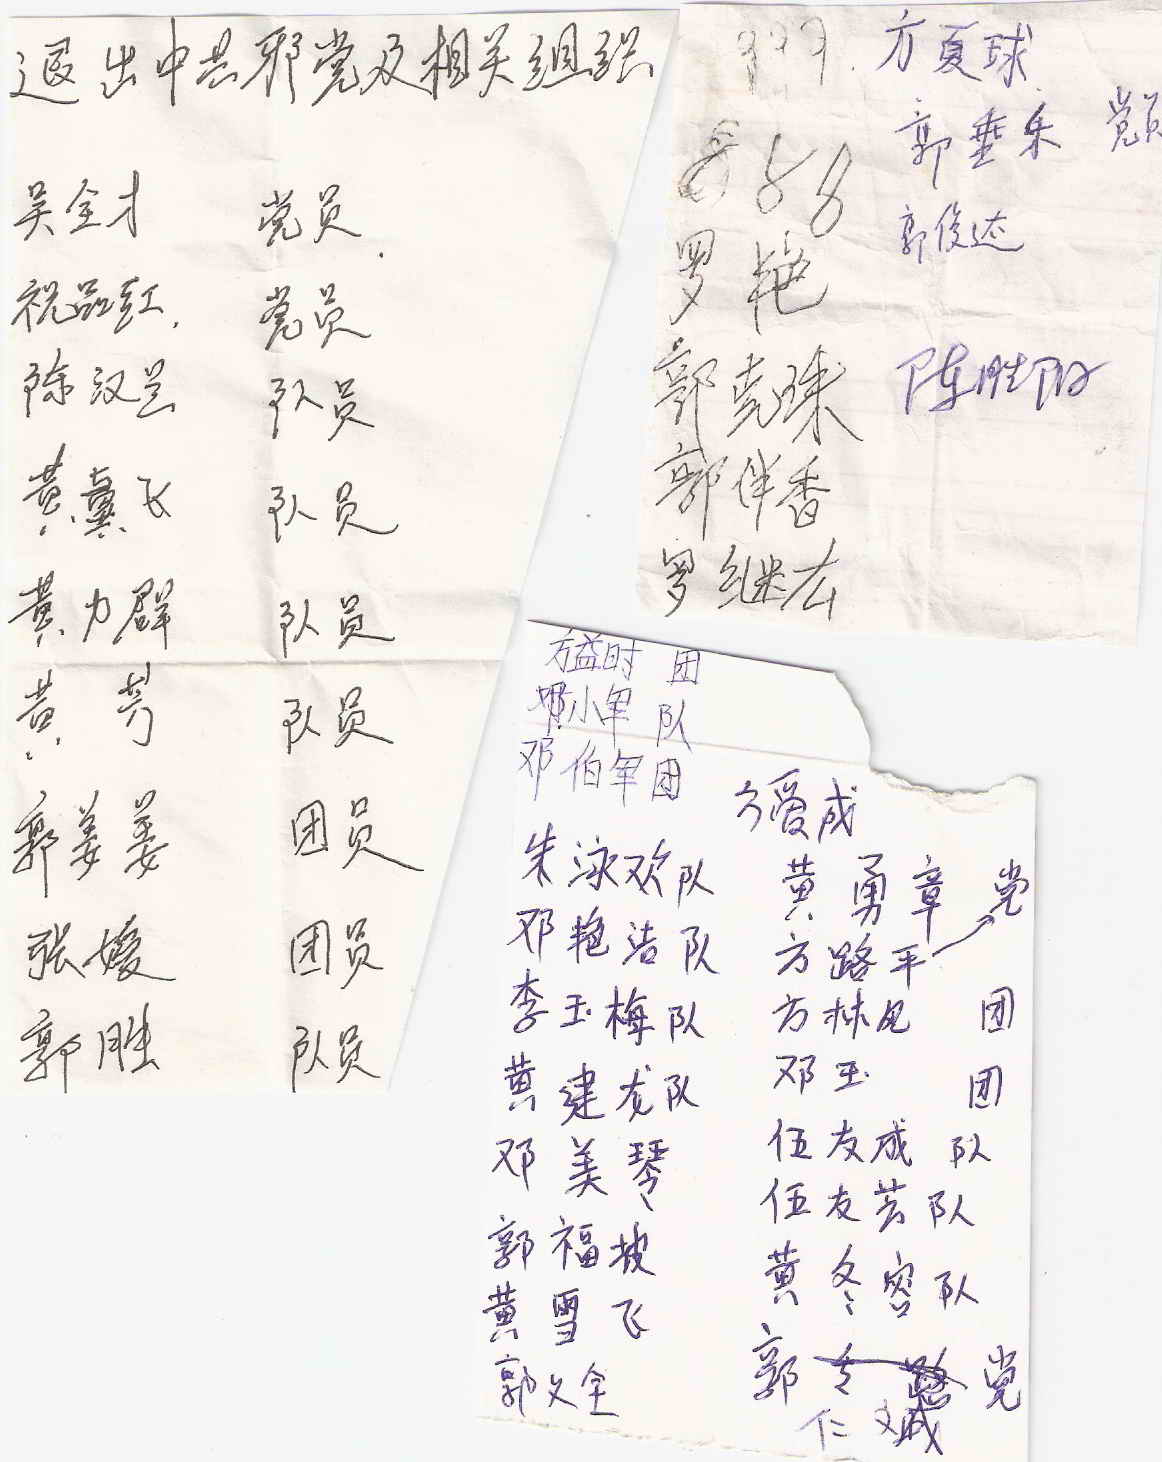 退出中共邪党及相关组织
吴全才 党员
祝品红 党员
陈汉兰 队员
黄冀飞 队员
黄力群 队员
黄芳 队员
郭姜姜 团员
张媛 团员
郭胜 队员
999. 方夏球
郭垂乐 党员
88
郭俊达
罗艳
陈胜阳
郭克球
郭伴香
罗继宏
方益时 团
小军 队
邓伯军 团
方爱成
朱泳欢 队
黄勇章 党
邓艳洁 队
方路平
李玉梅 队
方林 团
黄建龙 队
邓玉 团
邓美琴
伍友成 队
郭福坡
伍友芸 队
黄雪飞
黄冬容 队
郭文全
郭 党
仁诚